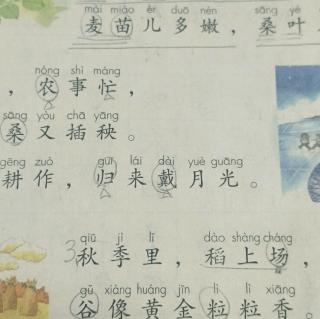 mài miáo ér duō nèn sāng yè
麦苗儿多嫩，桑叶
nóng shì máng
，农事忙，
sāng yòu chā yāng
桑又插秧。
gēng zuò guī lái dài yuè guāng
耕作，归来戴月光。
qiū jì lǐ dào shàng cháng
3.秋季里，稻上场，
gǔ xiàng huáng jīn lì lì xiāng
谷像黄金粒粒香。